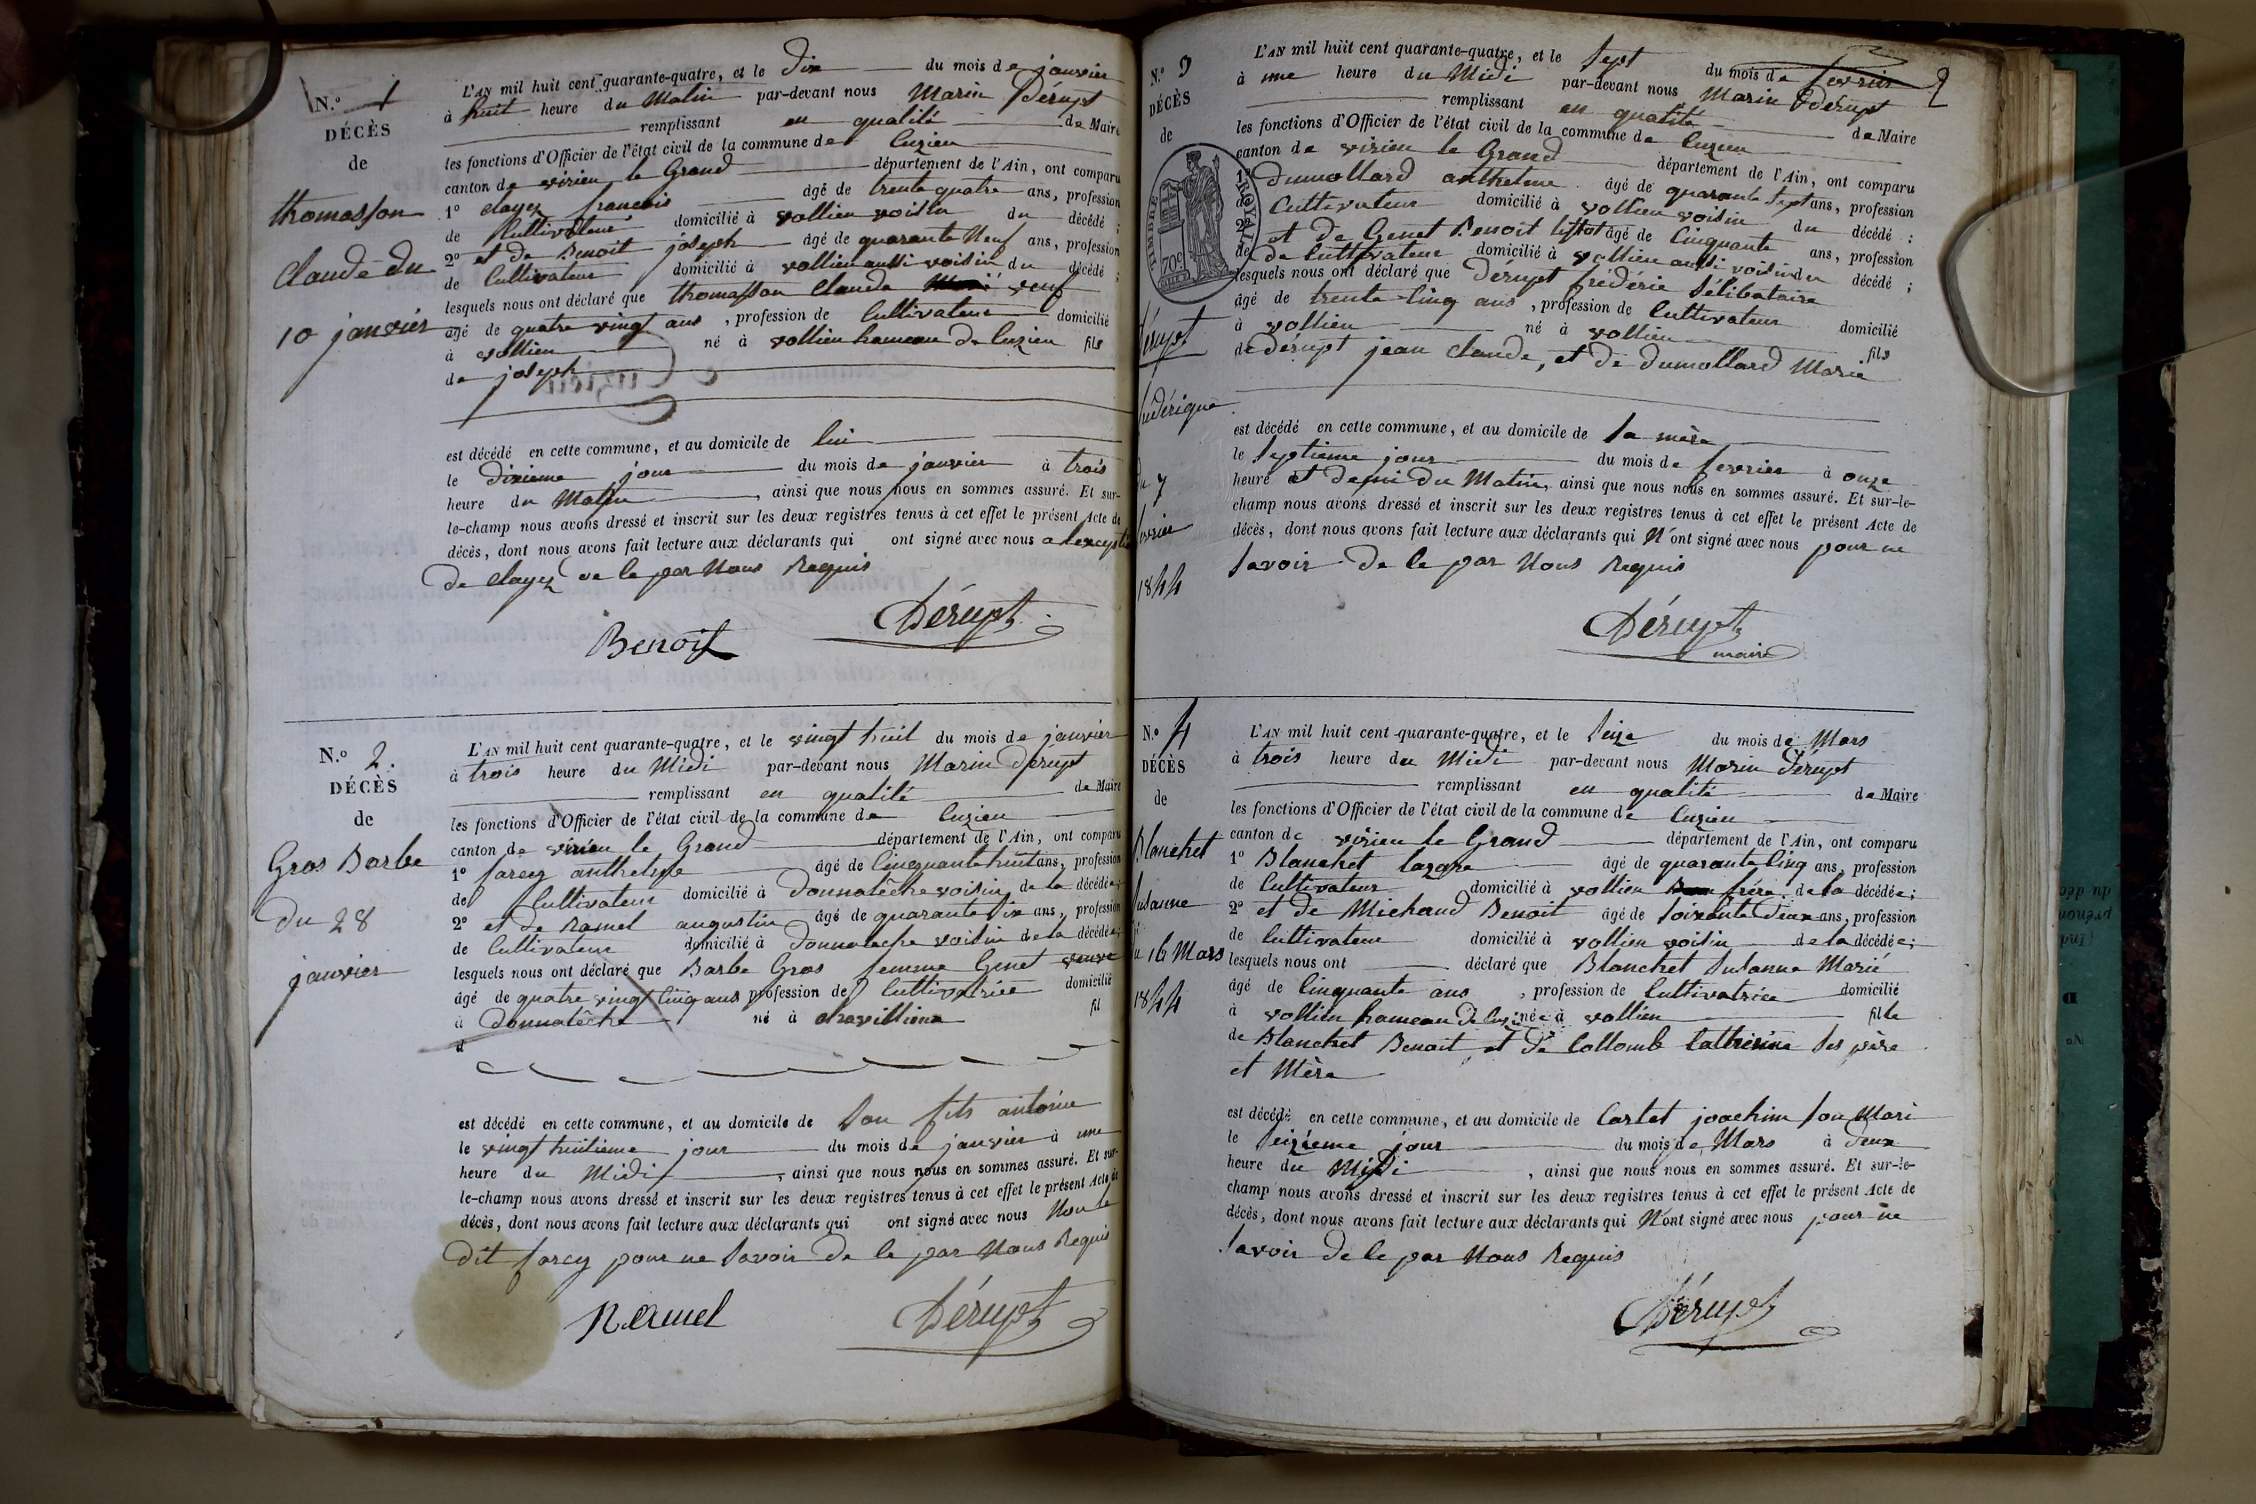 N.o 1
DÉCÈS
de
thomasson
Claude du
10 janvier
L'AN mil huit cent quarante-quatre, et le dix du mois de janvier
à huit heure du Matin par-devant nous Marin Dérupt
remplissant en qualité de Maire
les fonctions d'Officier de l'état civil de la commune de Cuzieu
canton de virieu le Grand département de l'Ain, ont comparu
1o clayez francois agé de trente quatre ans, profession
de Cultivateur domicilié à vollien voisin du décédé ;
2o et de Benoit joseph agé de quarante Neuf ans, profession
de Cultivateur domicilié à vollien aussi voisin du décédé ;
lesquels nous ont déclaré que thomasson Claude veuf
agé de quatre vingt ans , profession de Cultivateur domicilié
à vollien né à vollien hameau de Cuzieu fils
de joseph
est décédé en cette commune, et au domicile de lui
le dixieme jour du mois de janvier à trois
heure du Matin , ainsi que nous nous en sommes assuré. Et sur-
le-champ nous avons dressé et inscrit sur les deux registres tenus à cet effet le présent Acte de
décès, dont nous avons fait lecture aux déclarants qui ont signé avec nous a lexceptio
de clayez de le par Nous Requis
Benoit Dérupt
N.o 2.
DÉCÈS
de
Gros Barbe
du 28
janvier
L'AN mil huit cent quarante-quatre, et le vingt huit du mois de janvier
à trois heure du Midi par-devant nous Marin Dérupt
remplissant en qualité de Maire
les fonctions d'Officier de l'état civil de la commune de Cuzieu
canton de virieu le Grand département de l'Ain, ont comparu
1o farcy anthelme agé de Cinquante huit ans, profession
de Cultivateur domicilié à Donnalêche voisin de la décédée ;
2o et de Ramel augustin agé de quarante Six ans, profession
de Cultivateur domicilié à Donnalêche voisin de la décédée ;
lesquels nous ont déclaré que Barbe Gros femme Genet veuve
agé de quatre vingt Cinq ans profession de Cultivatrice domicilié
à Donnalêche né à chavillieu fil
d
est décédé en cette commune, et au domicile de Son fils antoine
le vingt huitieme jour du mois de janvier à une
heure du Midi , ainsi que nous nous en sommes assuré. Et sur-
le-champ nous avons dressé et inscrit sur les deux registres tenus à cet effet le présent Acte de
décès, dont nous avons fait lecture aux déclarants qui ont signé avec nous Non le
dit farcy pour ne Savoir de le par Nous Requis
Ramel Dérupt
N.o 3 2
DÉCÈS
de
Dérupt
frédérique
du 7
fevrier
1844
TIMBRE ROYAL
70c
L'AN mil huit cent quarante-quatre, et le Sept du mois de fevrier
à une heure du Midi par-devant nous Marin Dérupt
remplissant en qualité de Maire
les fonctions d'Officier de l'état civil de la commune de Cuzieu
canton de virieu le Grand département de l'Ain, ont comparu
1o Dumollard anthelme agé de quarante Sept ans, profession
de Cultivateur domicilié à vollien voisin du décédé ;
2o et de Genet Benoit agé de Cinquante ans, profession
de de Cultivateur domicilié à vollien aussi voisin du décédé ;
lesquels nous ont déclaré que Dérupt frédéric Sélibataire
agé de trente Cinq ans , profession de Cultivateur domicilié
à vollien né à vollien fils
de dérupt jean claude, et de dumollard Marie
est décédé en cette commune, et au domicile de Sa mère
le Septieme jour du mois de fevrier à onze
heure et demi du Matin, ainsi que nous nous en sommes assuré. Et sur-le-
champ nous avons dressé et inscrit sur les deux registres tenus à cet effet le présent Acte de
décès, dont nous avons fait lecture aux déclarants qui N'ont signé avec nous pour ne
Savoir de le par Nous Requis
Dérupt
maire
N.o 4
DÉCÈS
de
Blanchet
Susanne
du 16 Mars
1844
L'AN mil huit cent quarante-quatre, et le Seize du mois de Mars
à trois heure du Midi par-devant nous Marin Dérupt
remplissant en qualité de Maire
les fonctions d'Officier de l'état civil de la commune de Cuzieu
canton de virieu le Grand département de l'Ain, ont comparu
1o Blanchet Lazare agé de quarante Cinq ans, profession
de Cultivateur domicilié à vollien frére de la décédée ;
2o et de Michaud Benoit agé de Soixante Deux ans, profession
de Cultivateur domicilié à vollien voisin de la décédée ;
lesquels nous ont déclaré que Blanchet Susanne Marié
agé de Cinquante ans , profession de Cultivatrice domicilié
à vollien hameau de Cuzieu née à vollien fille
de Blanchet Benoit et de Collomb Catherine Ses père
et Mère
est décédé en cette commune, et au domicile de Cartet joachim Son Mari
le Seizieme jour du mois de Mars à deux
heure du Midi , ainsi que nous nous en sommes assuré. Et sur-le-
champ nous avons dressé et inscrit sur les deux registres tenus à cet effet le présent Acte de
décès, dont nous avons fait lecture aux déclarants qui N'ont signé avec nous pour ne
Savoir de le par Nous Requis
Dérupt